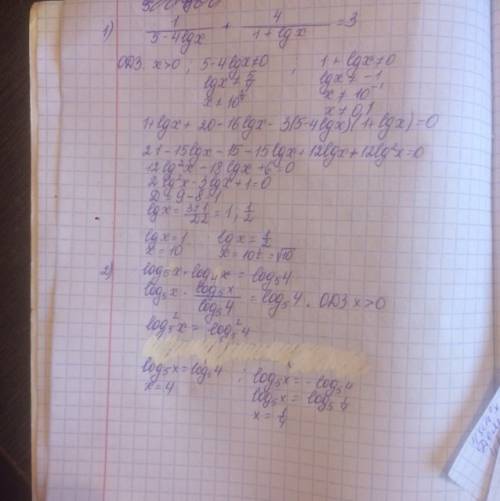 1) 1/(5-4lgx) + 4/(1+lgx) = 3
ОДЗ. x>0; 5-4lgx≠0; 1+lgx≠0
lgx≠5/4 lgx≠-1
x≠10^(5/4) x≠10^(-1)
x≠0,1
1+lgx+20-16lgx-3(5-4lgx)(1+lgx)=0
21-15lgx-15-15lgx+12lgx+12lg²x=0
12lg²x-18lgx+6=0
2lg²x-3lgx+1=0
D=9-8=1
lgx=(3±1)/(2·2)=1; 1/2
lgx=1 lgx=1/2
x=10 x=10^(1/2)=√10
2) log₅x·log₄x=log₅4
log₅x·(log₅x)/(log₅4)=log₅4. ОДЗ x>0
log₅²x=log₅²4
log₅x=log₅4; log₅x=-log₅4
x=4 log₅x=log₅1/4
x=1/4